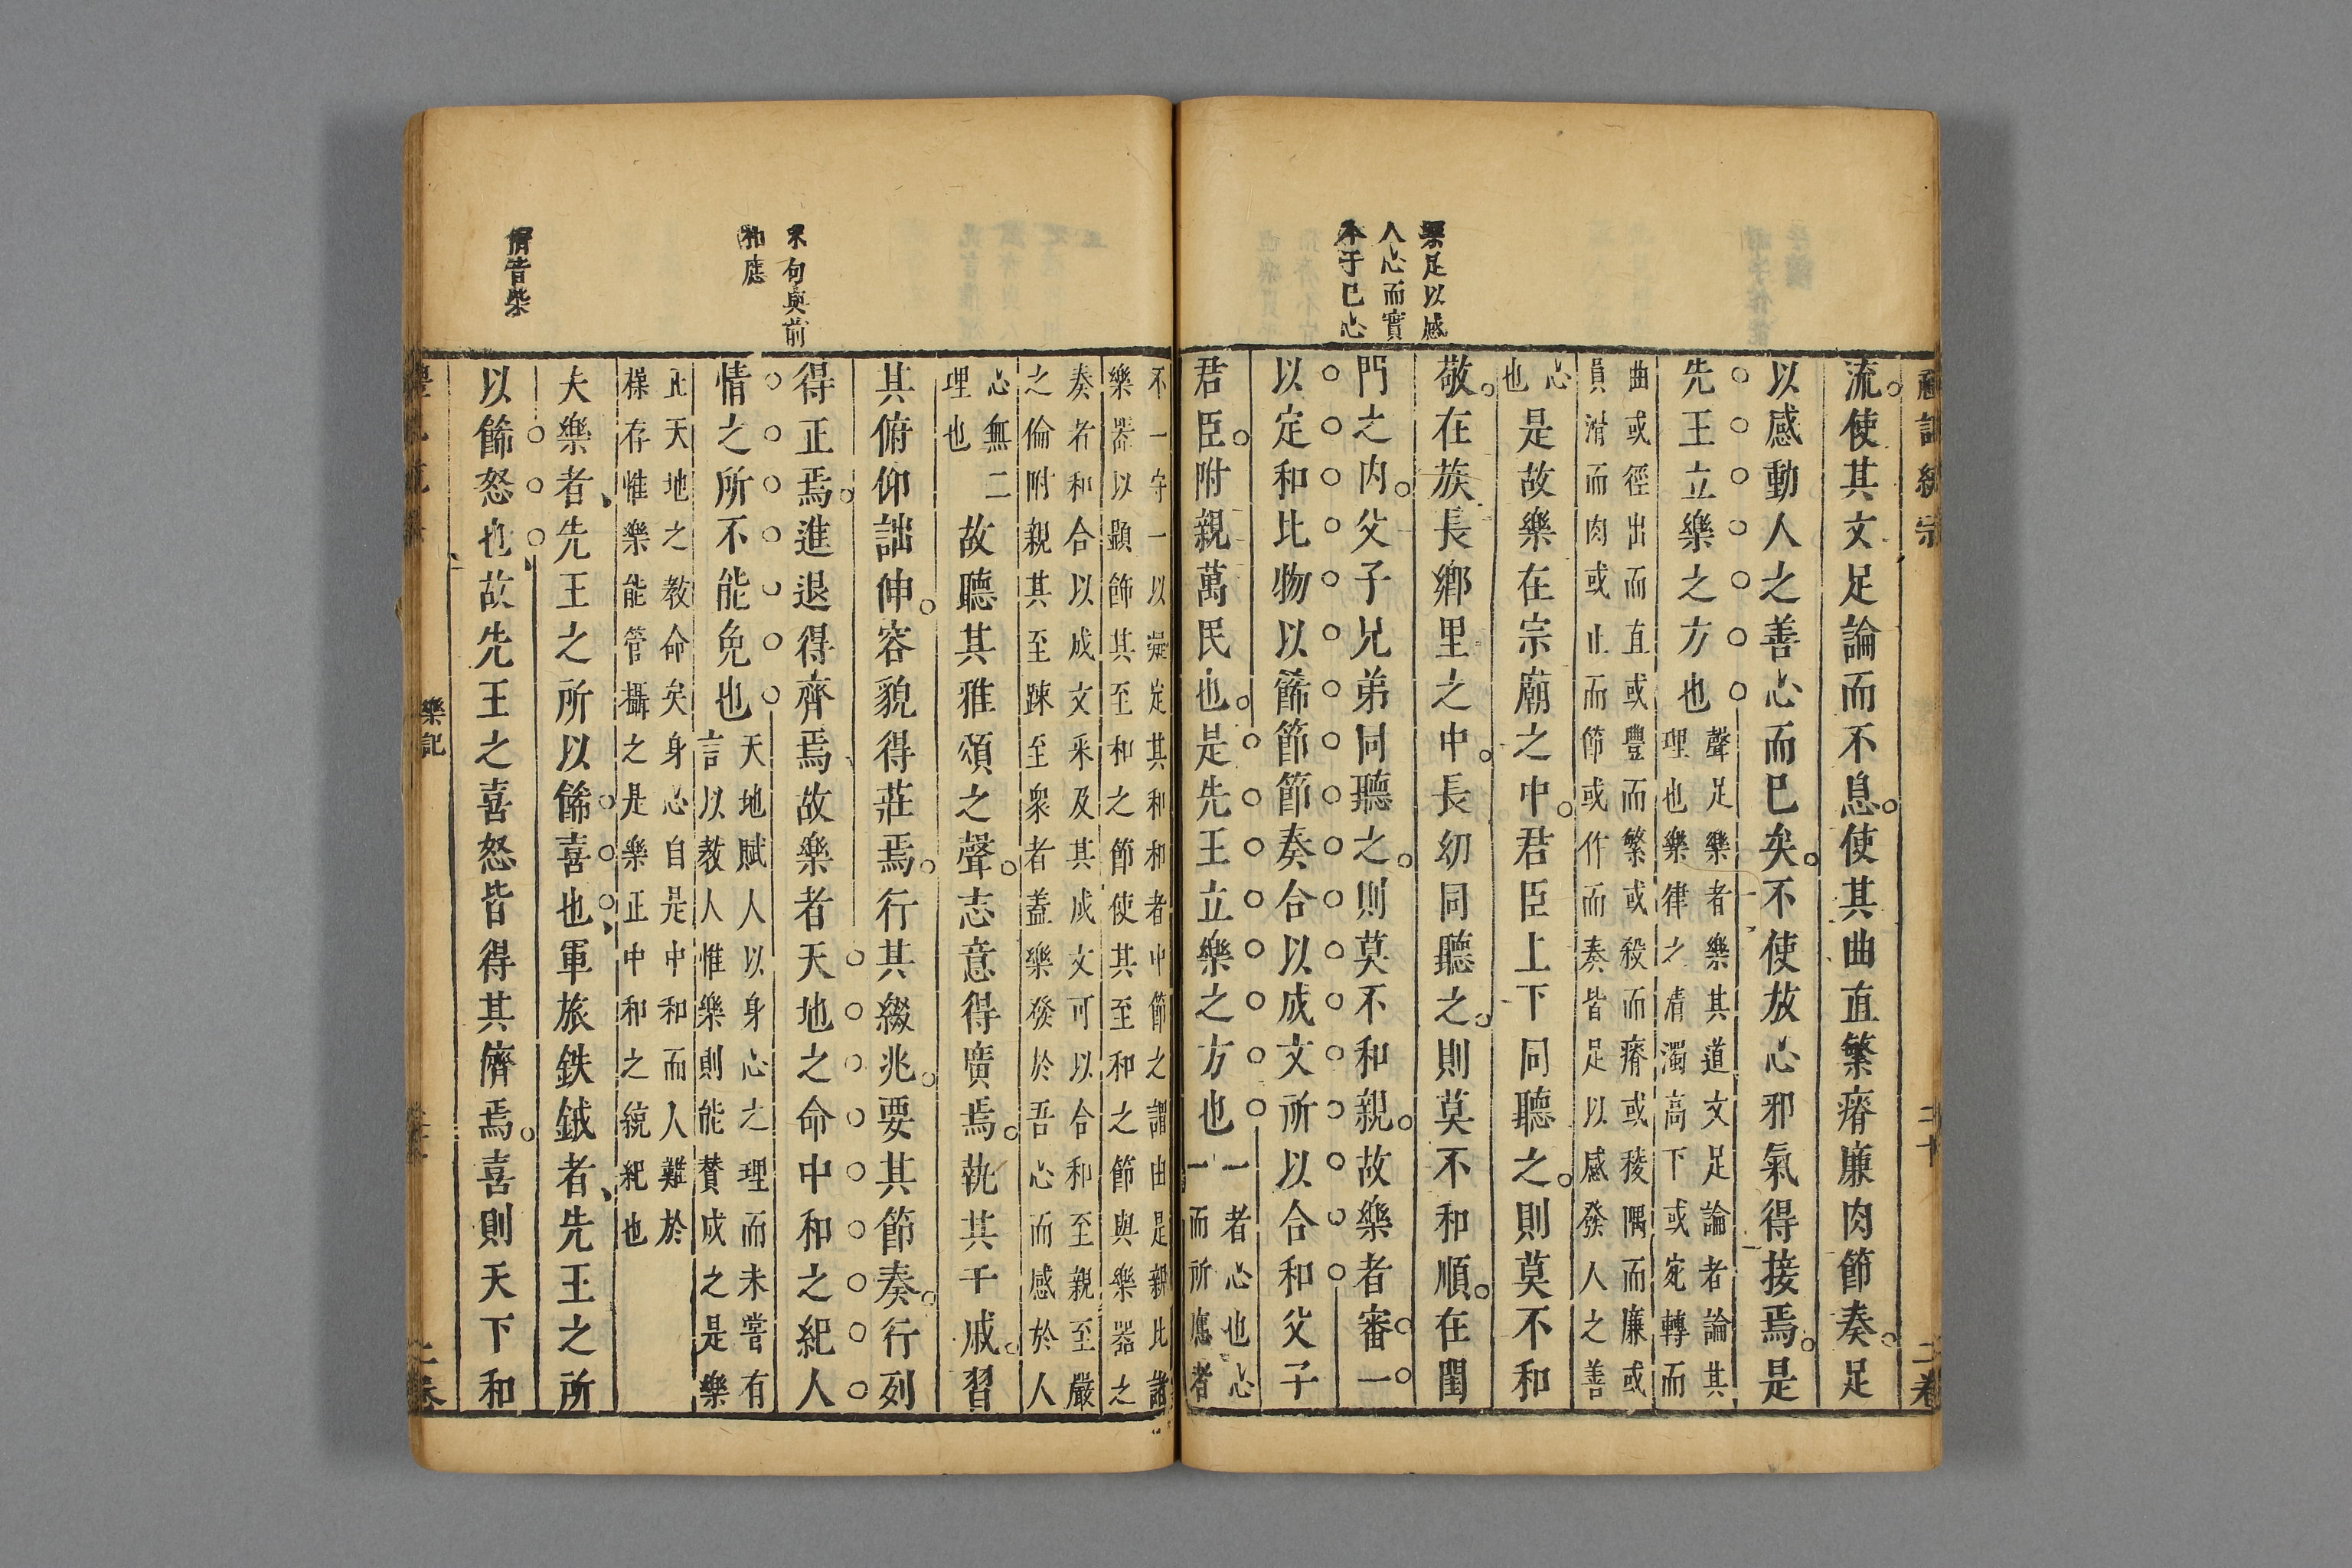 樂足以感
人心而實
本于已心
流使其文足論而不息使其曲直繁瘠廉肉節奏足
以感動人之善心而已矣不使放心邪氣得接焉是
先王立樂之方也
聲足樂者樂其道文足論者論其
理也樂律之清濁高下或宛轉而
曲或徑出而直或豐而繁或殺而瘠或稜隅而廉或
員滑而肉或止而節或作而奏皆足以感發人之善
心
也
是故樂在宗廟之中君臣上下同聽之則莫不和
敬在族長鄉里之中長幼同聽之則莫不和順在閨
門之內父子兄弟同聽之則莫不和親故樂者審一
以定和比物以飾節節奏合以成文所以合和父子
君臣附親萬民也是先王立樂之方也
一者心也心
一而所應者
末句與前
和應
不一守一以凝定其和和者中節之謂由是親比諸
樂器以顯飾其至和之節使其至和之節與樂器之
奏者和合以成文采及其成文可以合和至親至嚴
之倫附親其至踈至衆者蓋樂發於吾心而感於人
心無二
理也
故聽其雅頌之聲志意得廣焉執其干戚習
其俯仰詘伸容貌得莊焉行其綴兆要其節奏行列
得正焉進退得齊焉故樂者天地之命中和之紀人
情之所不能免也
天地賦人以身心之理而未嘗有
言以教人惟樂則能賛成之是樂
正天地之教命矣身心自是中和而人難於
操存惟樂能管攝之是樂正中和之統紀也
儕音柴
夫樂者先王之所以飾喜也軍旅鈇鉞者先王之所
以飾怒也故先王之喜怒皆得其儕焉喜則天下和
樂記